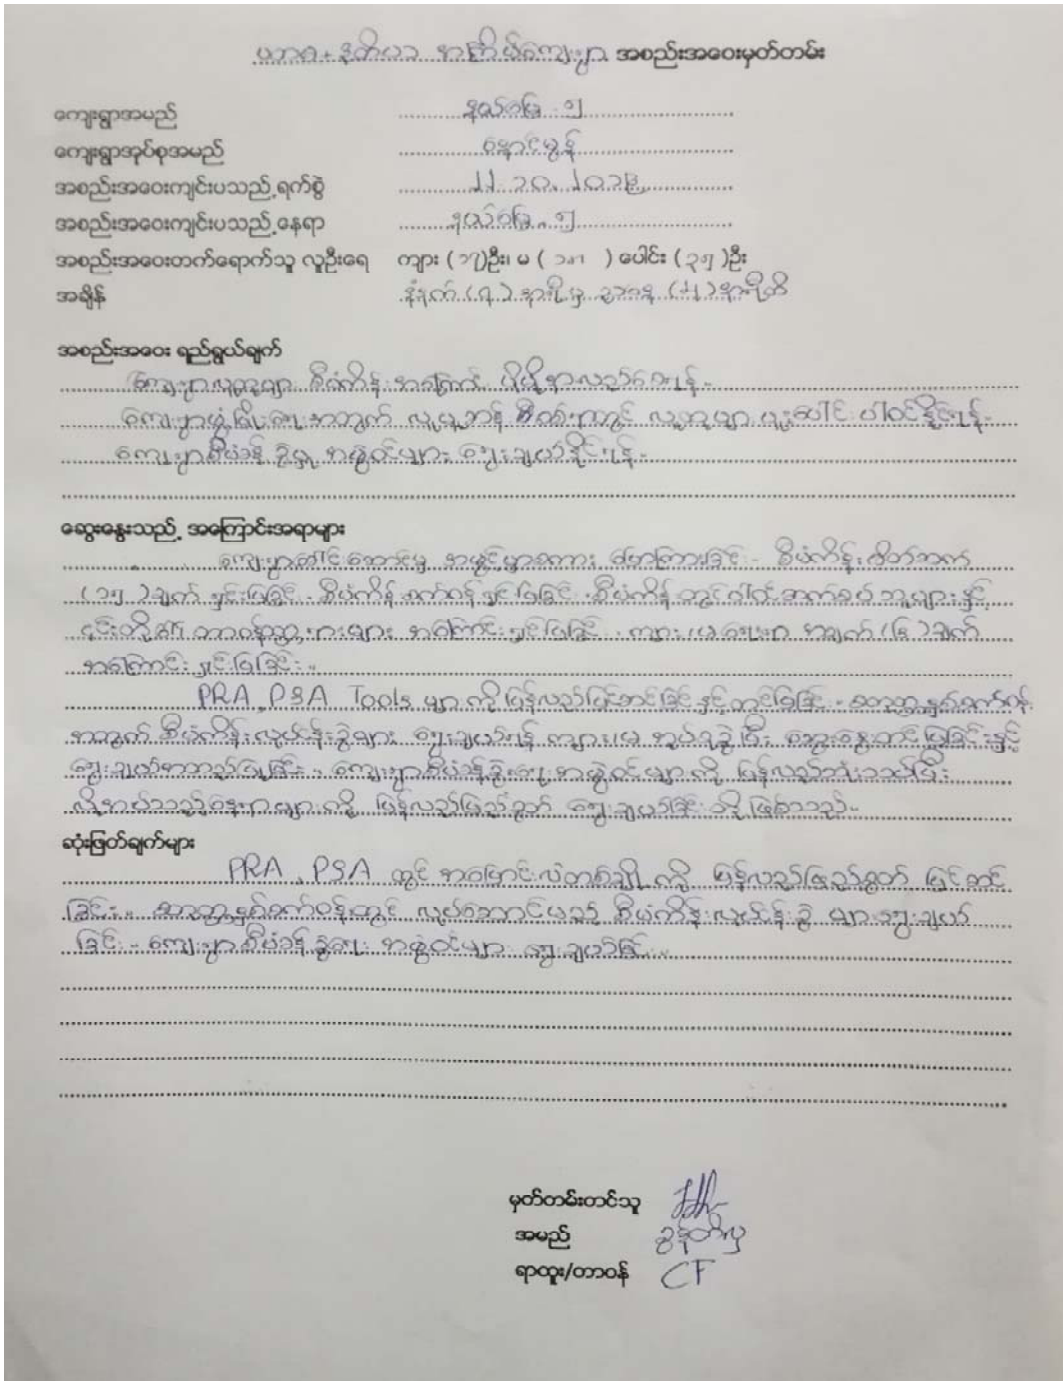 ပထမ + ဒုတိယ အကြိမ်ကျေးရွာ အစည်းအဝေးမှတ်တမ်း
ကျေးရွာအမည် နယ်မြေ ၅
ကျေးရွာအုပ်စုအမည် နောင်မွန်
အစည်းအဝေးကျင်းပသည့်ရက်စွဲ
အစည်းအဝေးကျင်းပသည့်နေရာ နယ်မြေ ၅
အစည်းအဝေးတက်ရောက်သူ လူဦးရေ ကျား ( ၁၇)ဦး၊ မ ( ၁၈ ) ပေါင်း ( ၃၅ )ဦး
အချိန် နံနက် (၇) နာရီမှ ညနေ (၂) နာရီထိ
အစည်းအဝေး ရည်ရွယ်ချက်
ကျေးရွာလူထုများ စီမံကိန်း အကြောင်း ပိုမို နားလည်စေရန်။
ကျေးရွာဖွံ့ဖြိုးရေးအတွက် လူမှုအခြေ စီစစ်ရာတွင် လူထုများ ပူးပေါင်း ပါဝင်နိုင်ရန်။
ကျေးရွာစီမံခန့်ခွဲမှု အဖွဲ့ဝင်များ ရွေးချယ်နိုင်ရန်။
ဆွေးနွေးသည့် အကြောင်းအရာများ
ကျေးရွာခေါင်းဆောင်မှ အဖွင့်အမှာစကား ပြောကြားခြင်း - စီမံကိန်း မူဝါဒ
(၁၅) ချက် ရှင်းပြခြင်း - စီမံကိန်း စက်ဝန်း ရှင်းပြခြင်း - စီမံကိန်း တွင် ပါဝင်ဆက်စပ် သူများ နှင့်
၎င်းတို့၏ တာဝန်ဝတ္တရားများ အကြောင်း ရှင်းပြခြင်း - ကျား/မ ရေးရာ အချက် (၆) ချက်
အကြောင်း ရှင်းပြခြင်း။
PRA, PSA Tools များ ကို ပြန်လည်ပြင်ဆင်ခြင်း နှင့် တင်ပြခြင်း - ဆတ္တမနှစ်စက်ဝန်း
အတွက် စီမံကိန်းလုပ်ငန်းခွဲများ ရွေးချယ်ရန် ကျား၊မ အုပ်စုခွဲပြီး ဆွေးနွေးတင်ပြခြင်းနှင့်
ရွေးချယ်အတည်ပြုခြင်း။ ကျေးရွာစီမံခန့်ခွဲရေး အဖွဲ့ဝင်များကို ပြန်လည်သုံးသပ်ပြီး
လိုအပ်သည့်နေရာများကို ပြန်လည်ဖြည့်စွက် ရွေးချယ်ခြင်း တို့ ဖြစ်သည်။
ဆုံးဖြတ်ချက်များ
PRA, PSA တွင် အပြောင်းလဲတစ်ချို့ ကို ပြန်လည်ဖြည့်စွက် ပြင်ဆင်
ခြင်း။ ဆတ္တမနှစ်စက်ဝန်းတွင် လုပ်ဆောင်မည့် စီမံကိန်းလုပ်ငန်းခွဲ များ ရွေးချယ်
ခြင်း - ကျေးရွာစီမံခန့်ခွဲရေး အဖွဲ့ဝင်များ ရွေးချယ်ခြင်း။
မှတ်တမ်းတင်သူ
အမည် ခွန်တိလှ
ရာထူး/တာဝန် CF